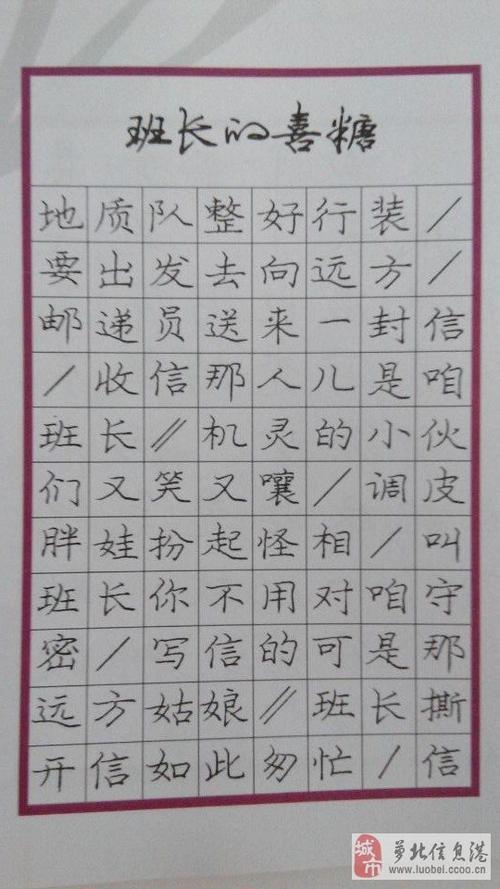 班长的喜糖
地质队整好行装/
要出发去向远方/
邮递员送来一封信
/收信那人儿是咱
班长//机灵的小伙
们又笑又嚷/调皮
胖娃扮起怪相/叫
班长你不用对咱守
密/写信的可是那
远方姑娘//班长撕
开信如此匆忙/信
城市 萝北信息港
www.luobei.ccoo.cn